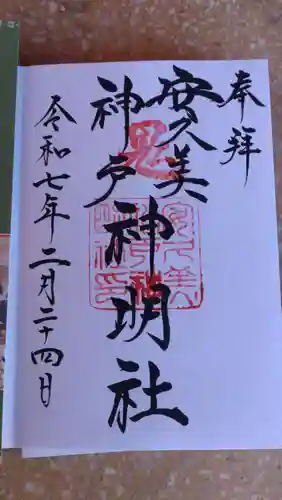 奉拝
安久美
神戸神明社
鬼
令和七年二月二十四日